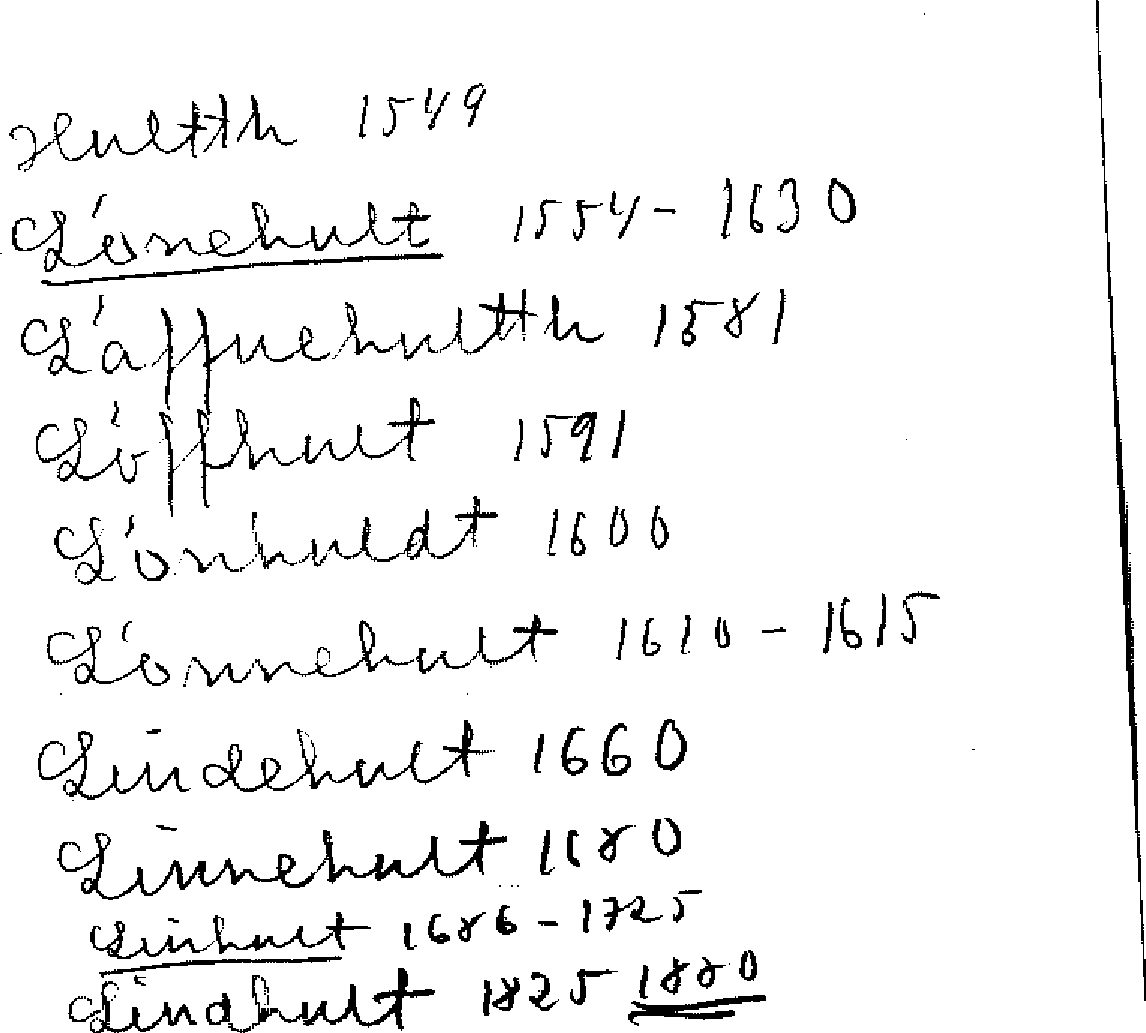 Hultth 1549
Lönehult 1554 - 1630
Läffuehultth 1581
Löffhult 1591
Lönhuldt 1600
Lönnehult 1610 - 1615
Lindehult 1660
Linnehult 1680
Linhult 1686 - 1725
Lindhult 1825 1880